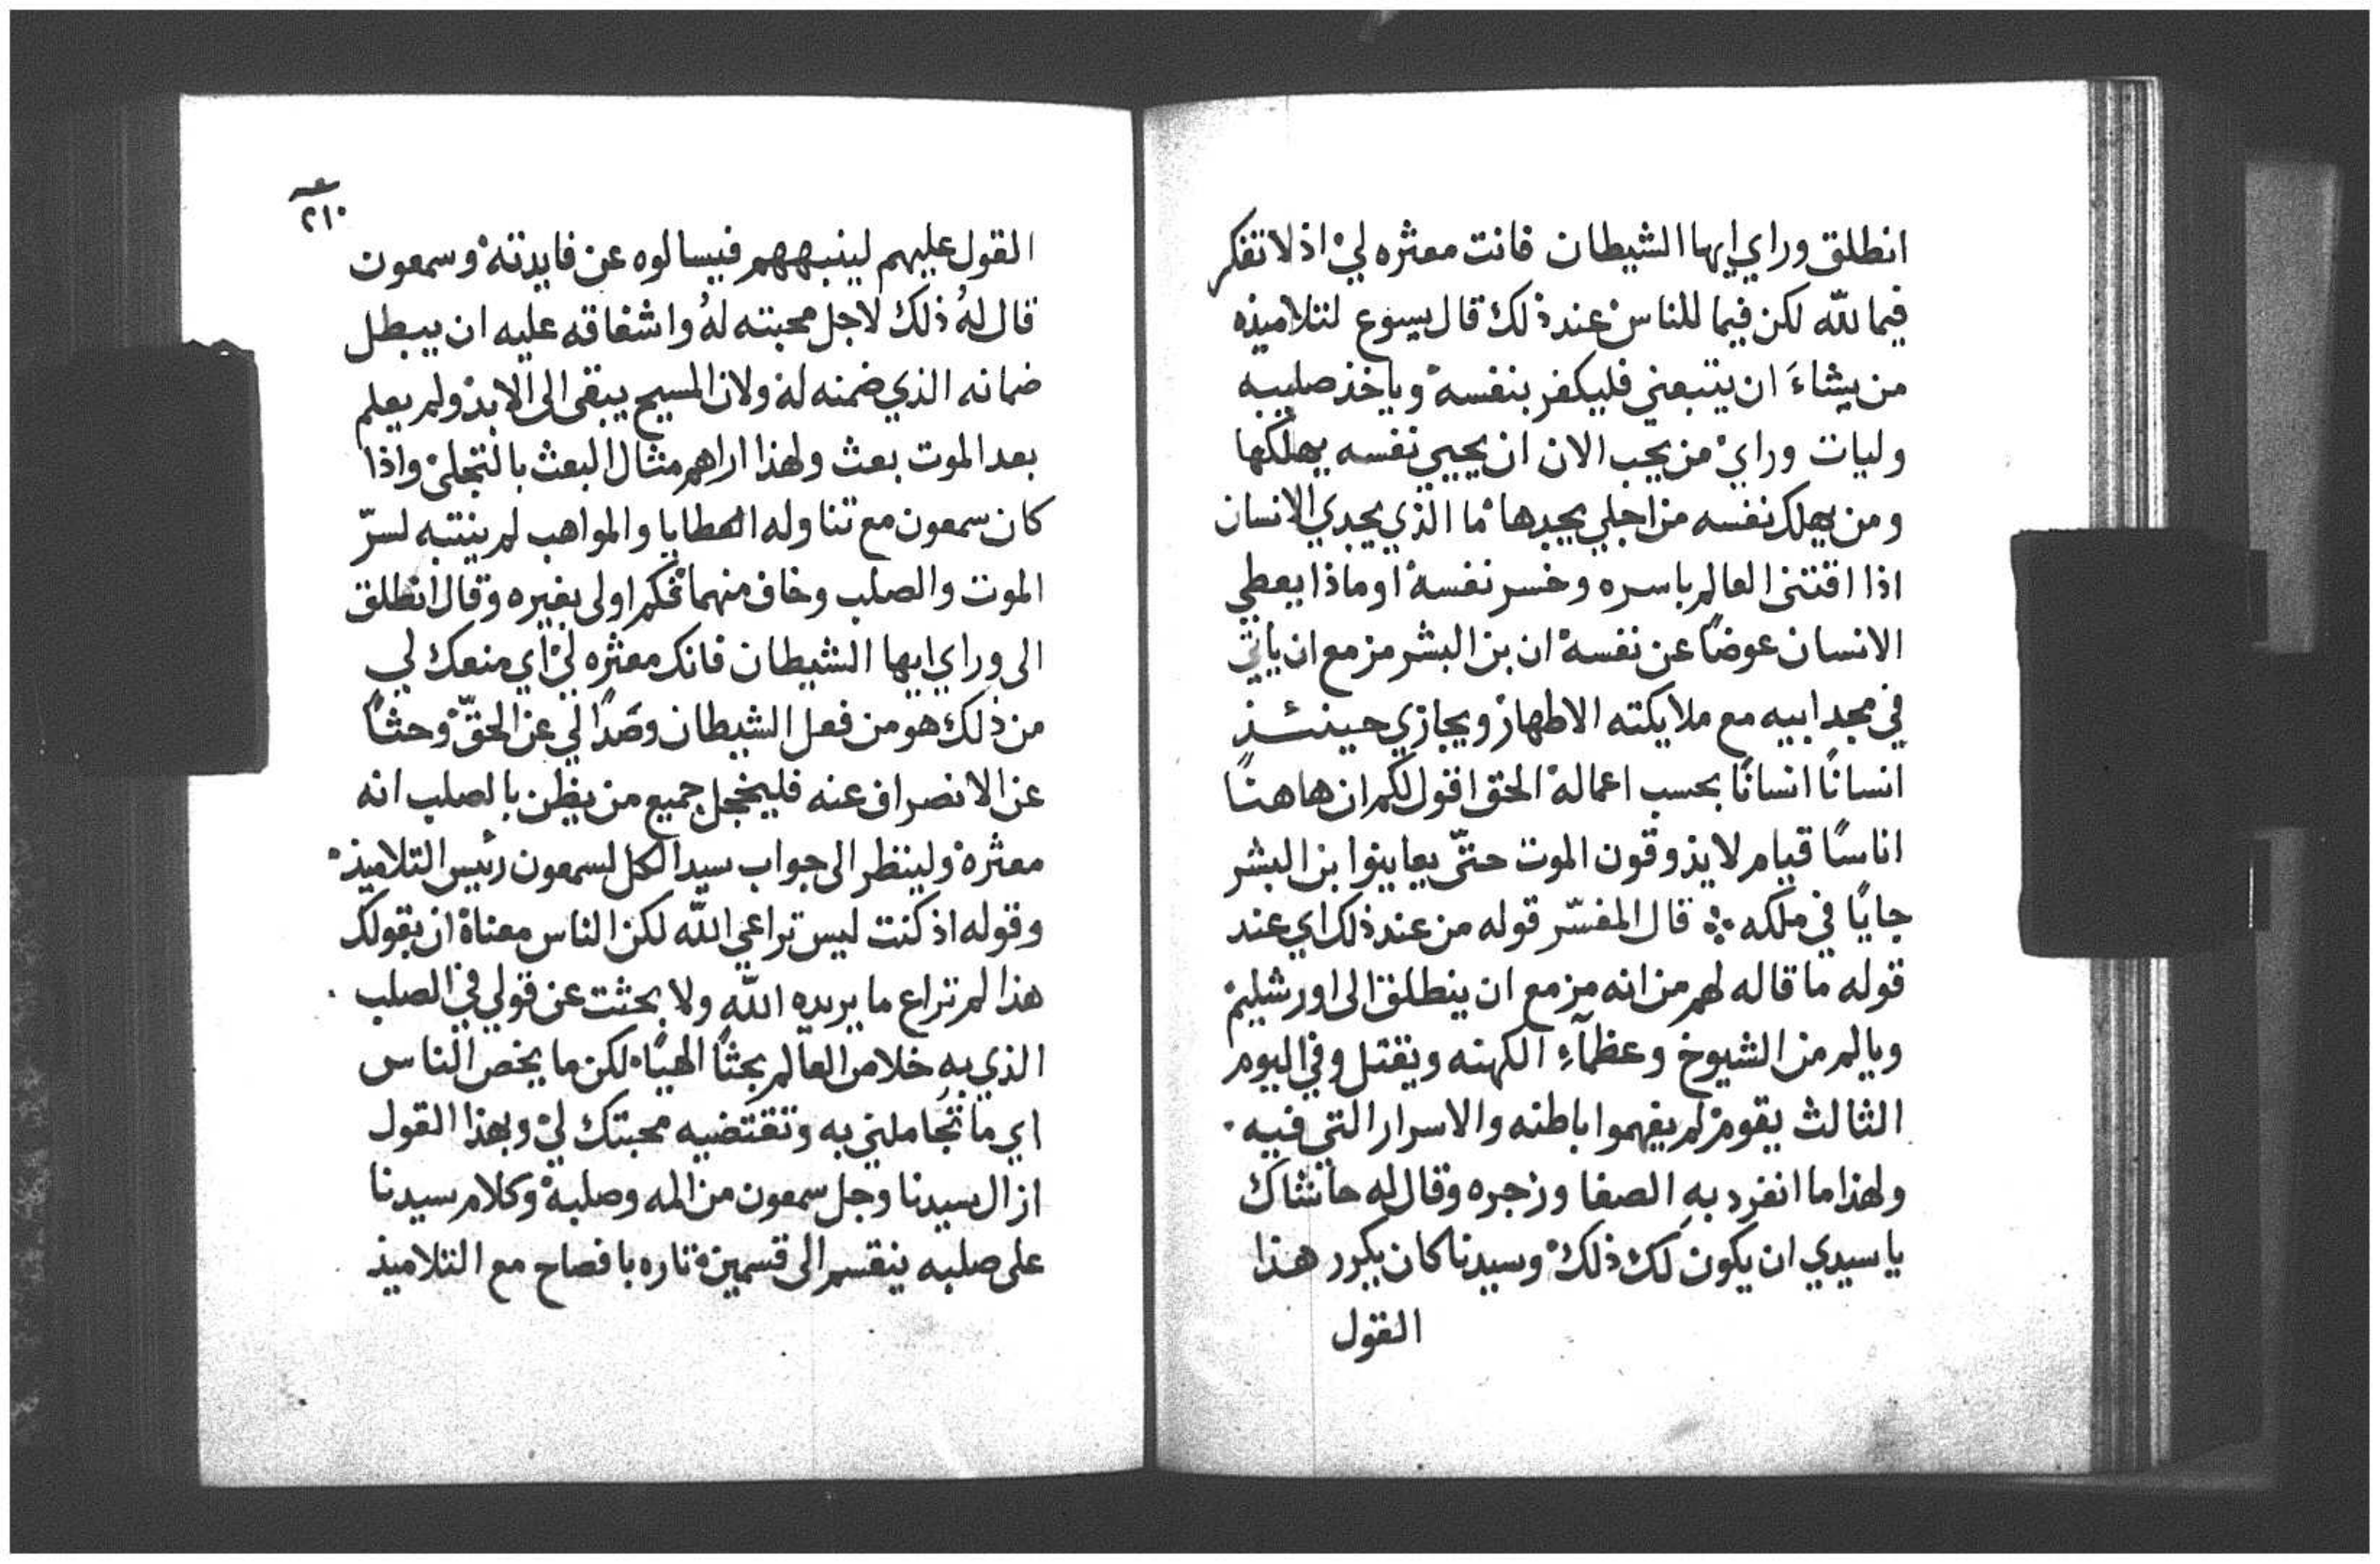 انطلق وراي ايها الشيطان فانت معثره لي اذ لا تفكر
فيما لله لكن فيما للناس عند ذلك قال يسوع لتلاميذه
من يشاءَ ان يتبعني فليكفر بنفسه وياخذ صليبه
وليات وراي من يحب الان ان يحيي نفسه يهلكها
ومن يهلك نفسه من اجلي يجدها ما الذي يجدي الانسان
اذا اقتنى العالم باسره وخسر نفسه او ماذا يعطي
الانسان عوضًا عن نفسه ان بن البشر مزمع ان ياتي
في مجد ابيه مع ملايكته الاطهار ويجازي حينئذ
انسانًا انسانًا بحسب اعماله الحق اقول لكم ان هاهنًا
اناسًا قيام لا يذوقون الموت حتّي يعاينوا بن البشر
جايًا في ملكه ܀ قال المفسّر قوله من عند ذلك اي عند
قوله ما قاله لهم من انه مزمع ان ينطلق الى اورشليم
ويالم من الشيوخ وعظمآءِ الكهنه ويقتل وفي اليوم
الثالث يقوم لم يفهموا باطنه والاسرار التي فيه ·
ولهذا ما انفرد بهِ الصفا وزجره وقال له حاشاك
يا سيدي ان يكون لك ذلك وسيدنا كان يكرر هذا
القول
٢١٠
القول عليهم لينبههم فيسالوه عن فايدته وسمعون
قال لهُ ذلك لاجل محبته لهُ واشفاقه عليه ان يبطل
ضمانه الذي ضمنه له ولان المسيح يبقى الى الابد ولم يعلم
بعد الموت بعث ولهذا اراهم مثال البعث بالتجلي واذا
كان سمعون مع تناوله العطايا والمواهب لم ينتبه لسرّ
الموت والصلب وخاف منهما فكم اولى بغيره وقال انطلق
الى وراي ايها الشيطان فانك معثره لي اي منعك لي
من ذلك هو من فعل الشيطان وصدًا لي عن الحقّ وحثًا
عن الانصراف عنه فليخجل جميع من يظن بالصلب انه
معثرة ولينظر الى جواب سيد الكل لسمعون رئيس التلاميذ
وقوله اذ كنت ليس تراعي الله لكن الناس معناه ان بقولك
هذا لم تراع ما يريده الله ولا بحثت عن قولي في الصلب ·
الذي به خلاص العالم بحثًا الهيًا لكن ما يخص الناس
اي ما تُجاملني به وتقتضيه محبتك لي وبهذا القول
ازال سيدنا وجل سمعون من المه وصلبه وكلام سيدنا
على صلبه ينقسم الى قسمين تاره بافصاح مع التلاميذ